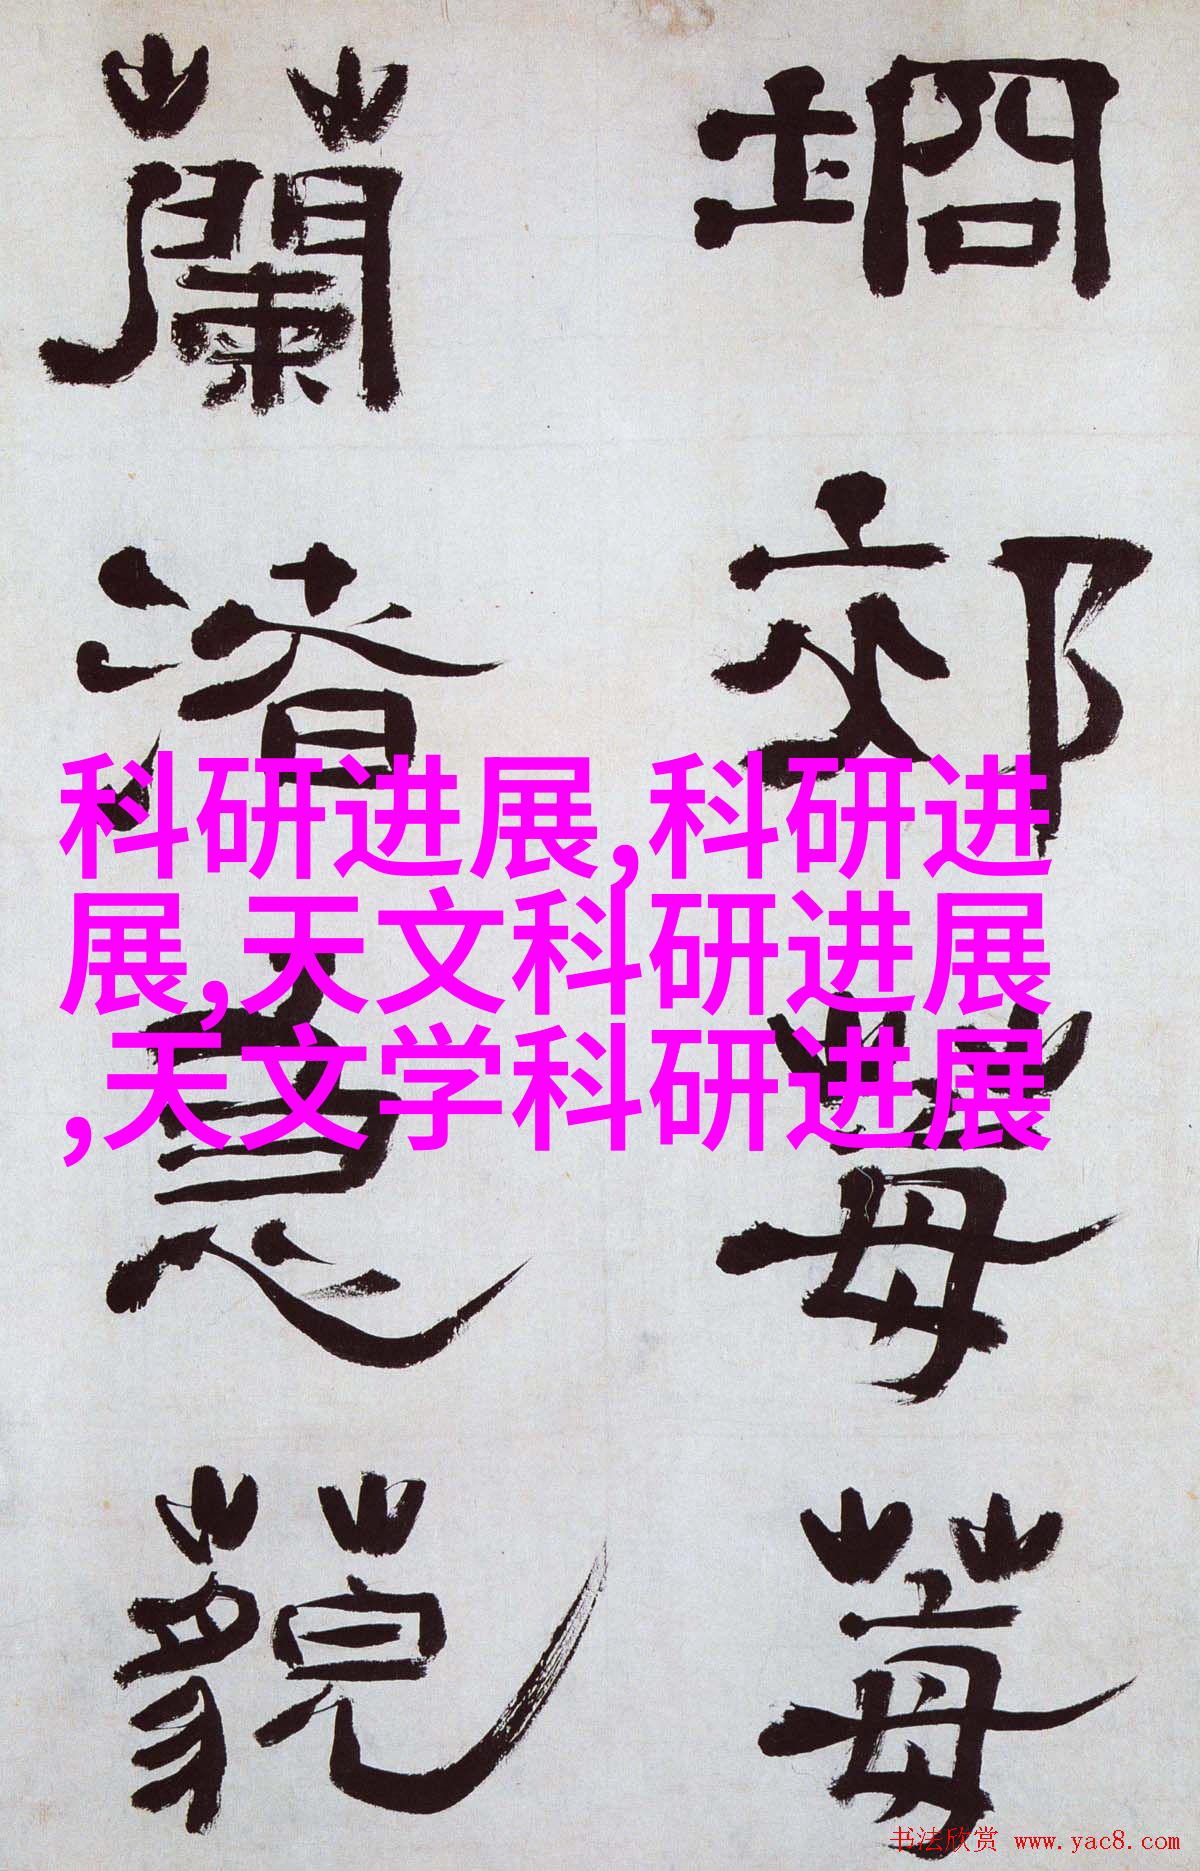 坰郊莓莓
蘭渚藐
科研进展,科研进
展,天文科研进展
,天文学科研进展
书法欣赏 www.yac8.com